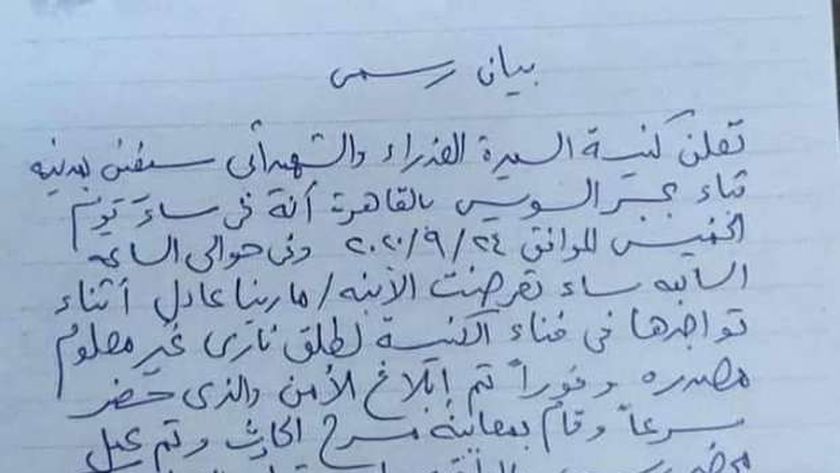 بيان رسمى
تعلن كنيسة السيدة العذراء والشهيد أبى سيفين بمدينه
قباء بجسر السويس بالقاهرة أنة فى مساء يوم
الخميس الموافق ٢٠٢٠/٩/٢٤ وفى حوالى الساعه
السابعه مساء تعرضت الأبنه/ مارينا عادل أثناء
تواجدها فى فناء الكنيسة لطلق نارى غير معلوم
مصدره وفوراً تم إبلاغ الأمن والذى حضر
سرعاً وقام بمعاينة مسرح الحادث وتم عمل
محضر